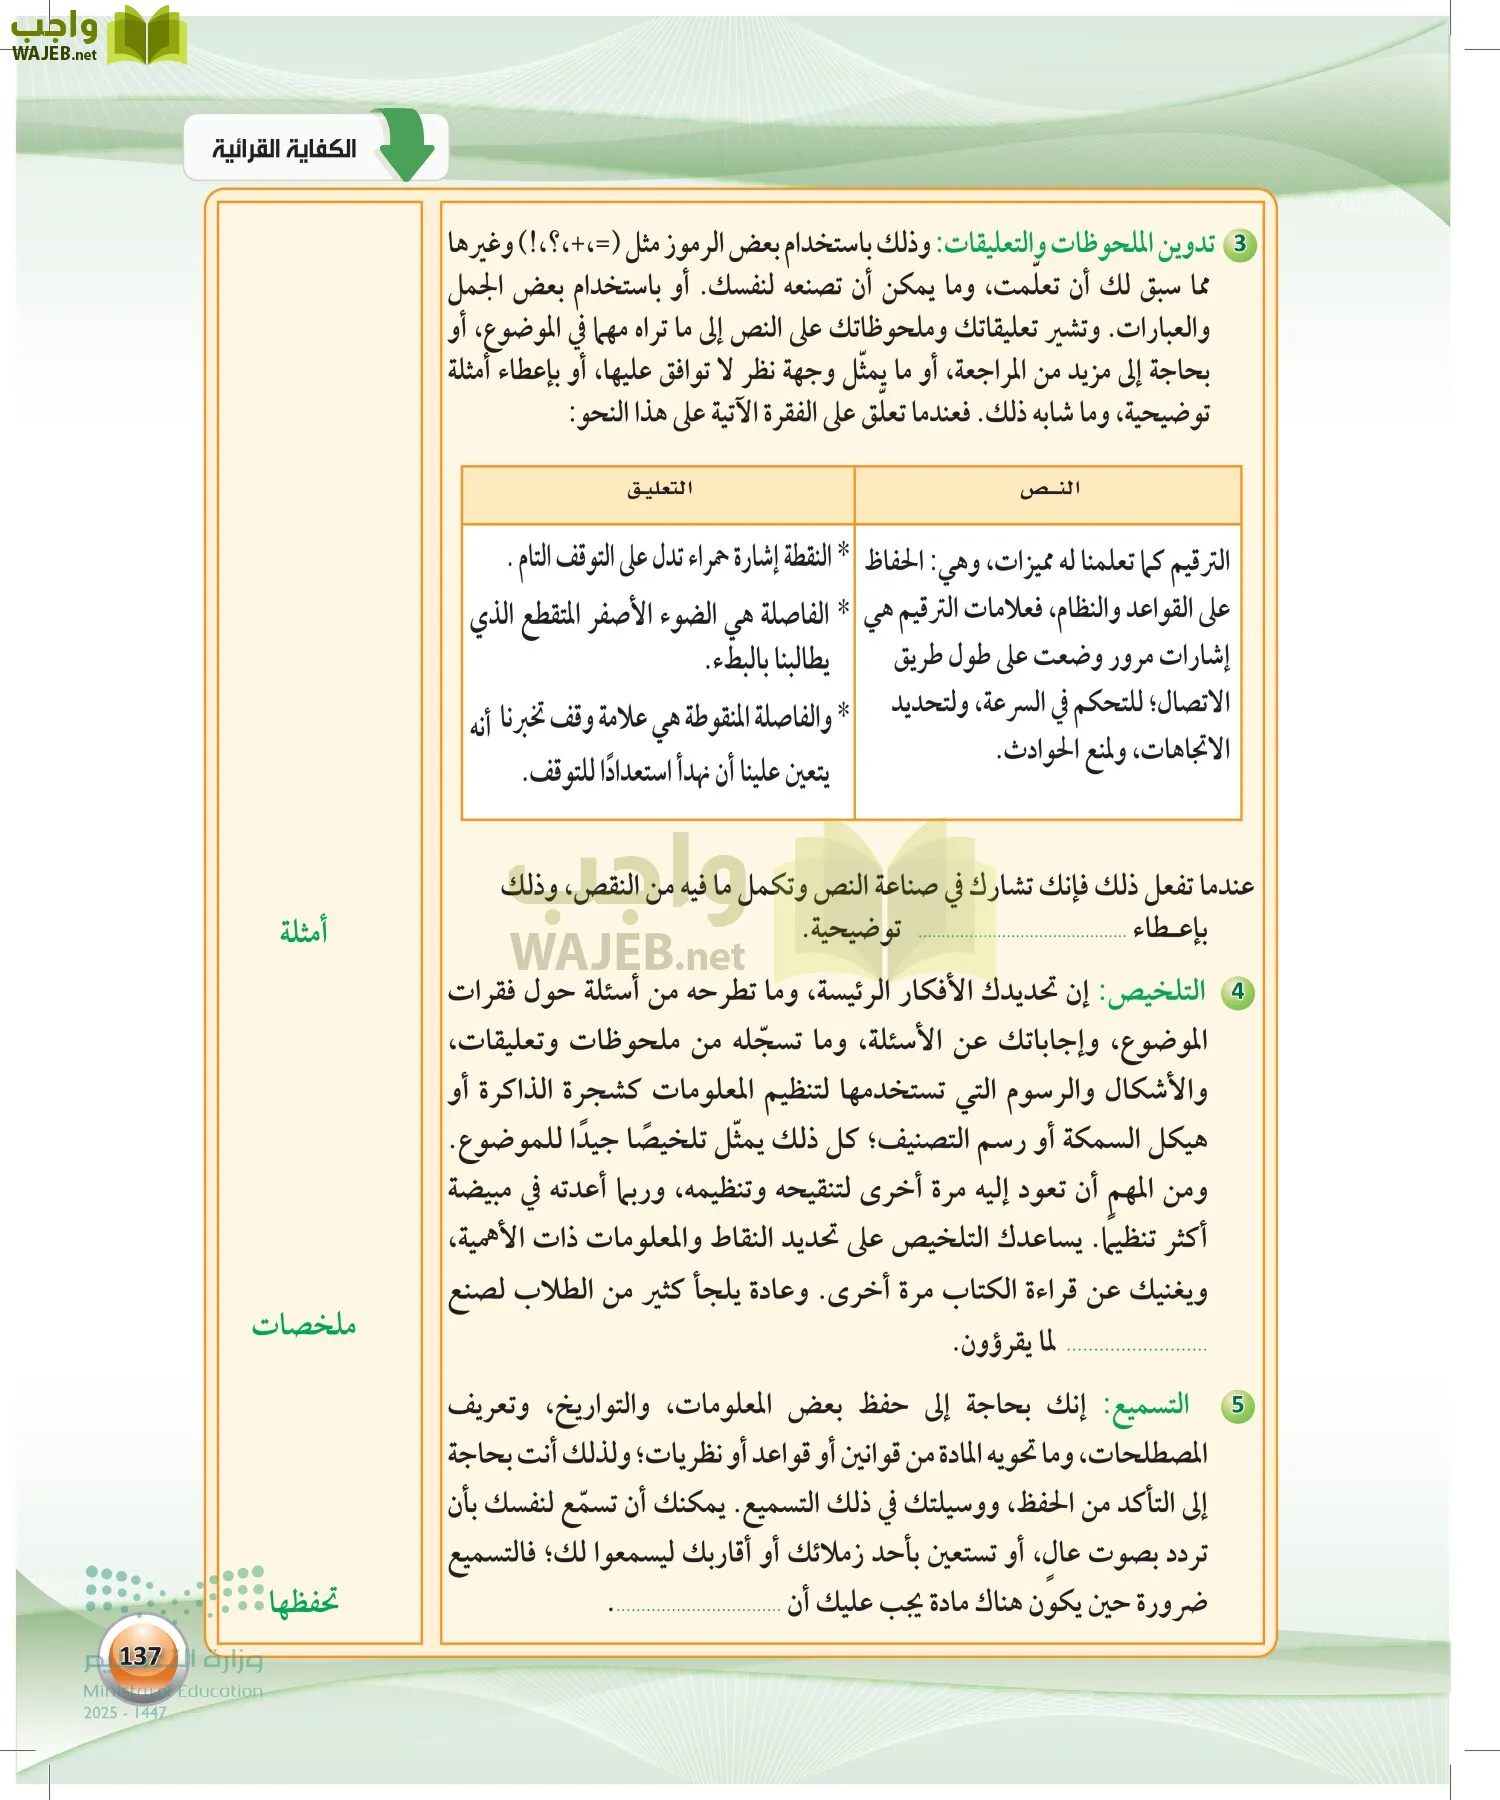 واجب
WAJEB.net
الكفاية القرائية
3 تدوين الملحوظات والتعليقات: وذلك باستخدام بعض الرموز مثل (=،+،؟،!) وغيرها
مما سبق لك أن تعلّمت، وما يمكن أن تصنعه لنفسك. أو باستخدام بعض الجمل
والعبارات. وتشير تعليقاتك وملحوظاتك على النص إلى ما تراه مهما في الموضوع، أو
بحاجة إلى مزيد من المراجعة، أو ما يمثّل وجهة نظر لا توافق عليها، أو بإعطاء أمثلة
توضيحية، وما شابه ذلك. فعندما تعلّق على الفقرة الآتية على هذا النحو:
النــص
الترقيم كما تعلمنا له مميزات، وهي: الحفاظ
على القواعد والنظام، فعلامات الترقيم هي
إشارات مرور وضعت على طول طريق
الاتصال؛ للتحكم في السرعة، ولتحديد
الاتجاهات، ولمنع الحوادث.
التعليـق
* النقطة إشارة حمراء تدل على التوقف التام .
* الفاصلة هي الضوء الأصفر المتقطع الذي
يطالبنا بالبطء.
* والفاصلة المنقوطة هي علامة وقف تخبرنا أنه
يتعين علينا أن نهدأ استعدادًا للتوقف.
واجب
WAJEB.net
عندما تفعل ذلك فإنك تشارك في صناعة النص وتكمل ما فيه من النقص، وذلك
بإعـطاء ........................................ توضيحية.
أمثلة
4 التلخيص: إن تحديدك الأفكار الرئيسة، وما تطرحه من أسئلة حول فقرات
الموضوع، وإجاباتك عن الأسئلة، وما تسجّله من ملحوظات وتعليقات،
والأشكال والرسوم التي تستخدمها لتنظيم المعلومات كشجرة الذاكرة أو
هيكل السمكة أو رسم التصنيف؛ كل ذلك يمثّل تلخيصًا جيدًا للموضوع.
ومن المهم أن تعود إليه مرة أخرى لتنقيحه وتنظيمه، وربما أعدته في مبيضة
أكثر تنظيمًا. يساعدك التلخيص على تحديد النقاط والمعلومات ذات الأهمية،
ويغنيك عن قراءة الكتاب مرة أخرى. وعادة يلجأ كثير من الطلاب لصنع
........................... لما يقرؤون.
ملخصات
5 التسميع: إنك بحاجة إلى حفظ بعض المعلومات، والتواريخ، وتعريف
المصطلحات، وما تحويه المادة من قوانين أو قواعد أو نظريات؛ ولذلك أنت بحاجة
إلى التأكد من الحفظ، ووسيلتك في ذلك التسميع. يمكنك أن تسمّع لنفسك بأن
تردد بصوت عالٍ، أو تستعين بأحد زملائك أو أقاربك ليسمعوا لك؛ فالتسميع
ضرورة حين يكون هناك مادة يجب عليك أن ................................
تحفظها
137
وزارة التعليم
Ministry of Education
2025 - 1447